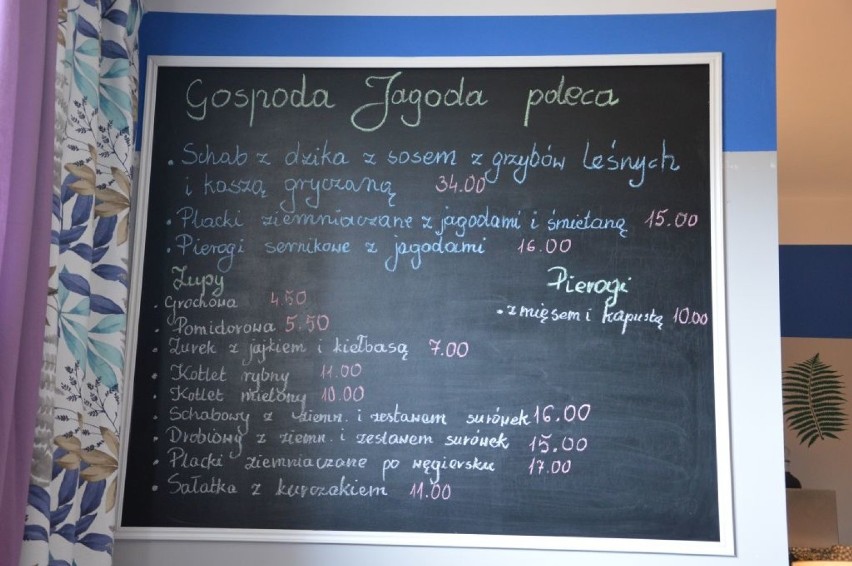 Gospoda Jagoda poleca
• Schab z dzika z sosem z grzybów leśnych
i kaszą gryczaną 34.00
• Placki ziemniaczane z jagodami i śmietaną 15.00
• Pierogi sernikowe z jagodami 16.00
Zupy
• Grochowa 4.50
• Pomidorowa 5.50
• Żurek z jajkiem i kiełbasą 7.00
• Kotlet rybny 11.00
• Kotlet mielony 10.00
• Schabowy z ziemn. i zestawem surówek 16.00
• Drobiowy z ziemn. i zestawem surówek 15.00
• Placki ziemniaczane po węgiersku 17.00
• Sałatka z kurczakiem 11.00
Pierogi
• z mięsem i kapustą 10.00